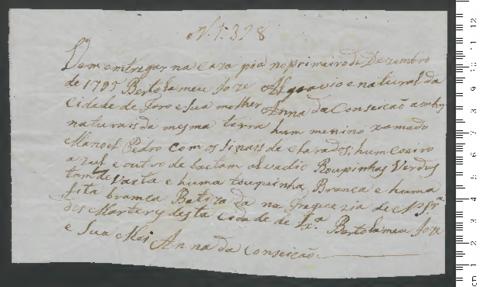 N.º 1:328
Vem entregar na caza pia no primeiro de Dezembro
de 1795 Bertolameu Joze e natural da
Cidade de e Sua molher Anna da Conseicão ambos
naturais da mesma terra hum menino xamado
Manoel Pedro com os Sinais de clarados, hum Coeiro
azul e outro de baetam Roupinhas Verdes
e huma touquinha Branca e huma
fita branca Batizado na freguezia de N. Sr.ª
dos Martery desta Cidade de Lx.ª Bertolameu Joze
e Sua Mai Anna da conseicão